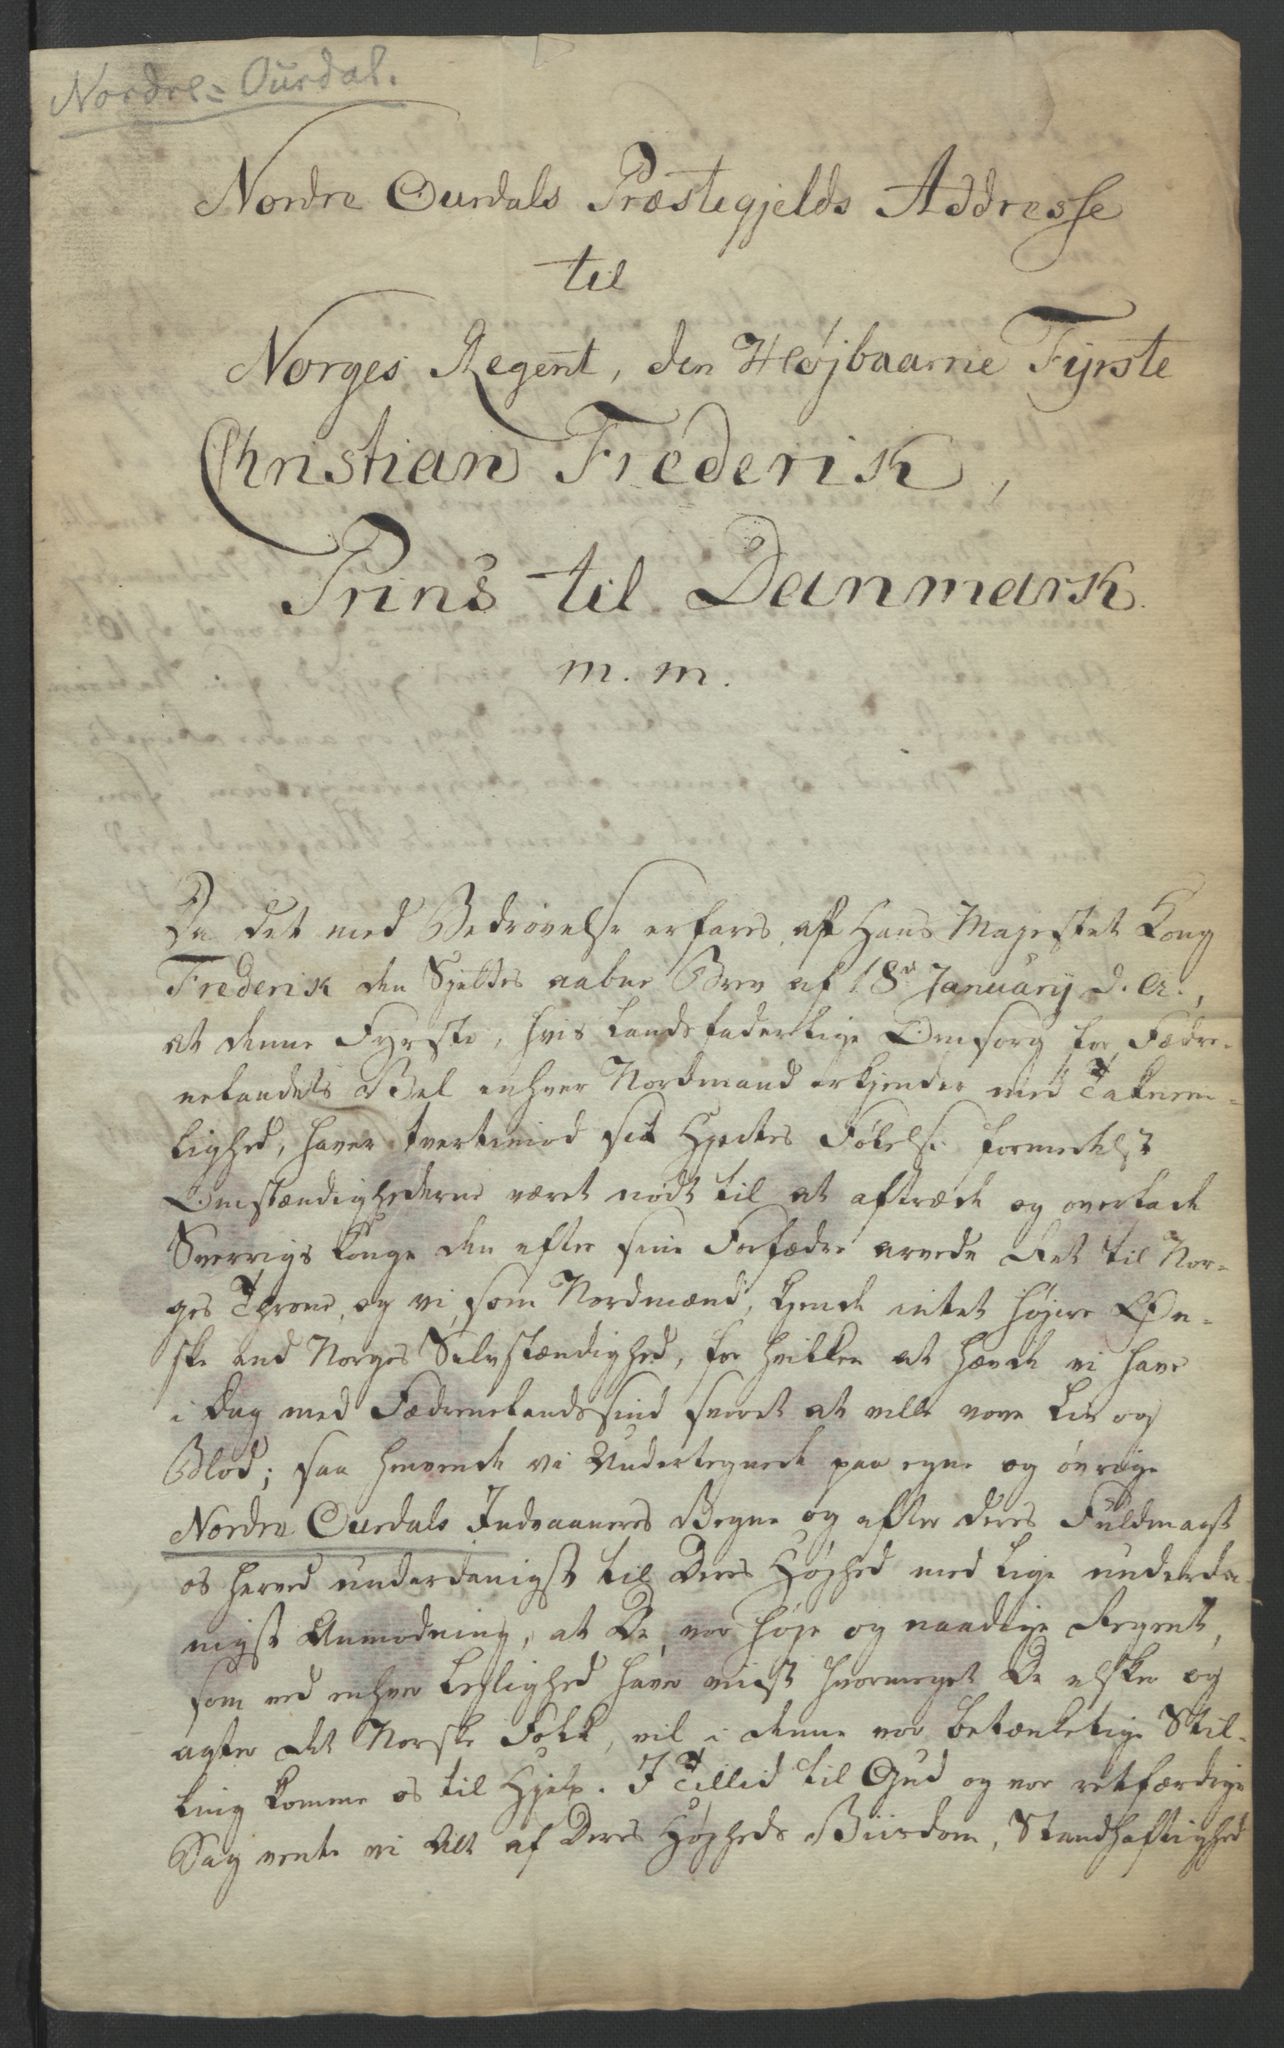 Nordre=Ourdal.
Nordre Ourdals Præstegjelds Addresse
til
Norges Regent, den Højbaarne Fyrste
Christian Frederik,
Prins til Danmark
m. m.
Da det med Bedrøvelse erfares af Hans Majestet Kong
Frederik den Sjettes aabne Brev af 18de Januarij d. A.,
at denne Fyrste, hvis landsfaderlige Omsorg for Fædre-
nelandets Vel enhver Nordmand erkjender med Taknem-
lighed, haver tvertimod sit Hjertes Følelse formedelst
Omstændighederne været nødt til at aftræde og overlade
Sverrigs Konge den efter sine Forfædre arvede Ret til Nor-
ges Throne, og vi, som Nordmænd, kjende intet højere Øn-
ske end Norges Selvstændighed, for hvilken at hævde vi have
i Dag med Fædrenelandssind svoret at ville vove Liv og
Blod; saa henvende vi Undertegnede paa egne og øvrige
Nordre Ourdals Indvaaneres Vegne og efter deres Fuldmagt
os herved underdanigst til Deres Højhed med lige underda-
nigst Anmodning, at De, vor høje og naadige Regent,
som ved enhver Leilighed haver viist hvormeget De elsker og
agter det Norske Folk, vil i denne vor betænkelige Stil-
ling komme os til Hjelp. I Tillid til Gud og vor retfærdige
Sag vente vi Alt af Deres Højheds Viisdom, Standhaftighed